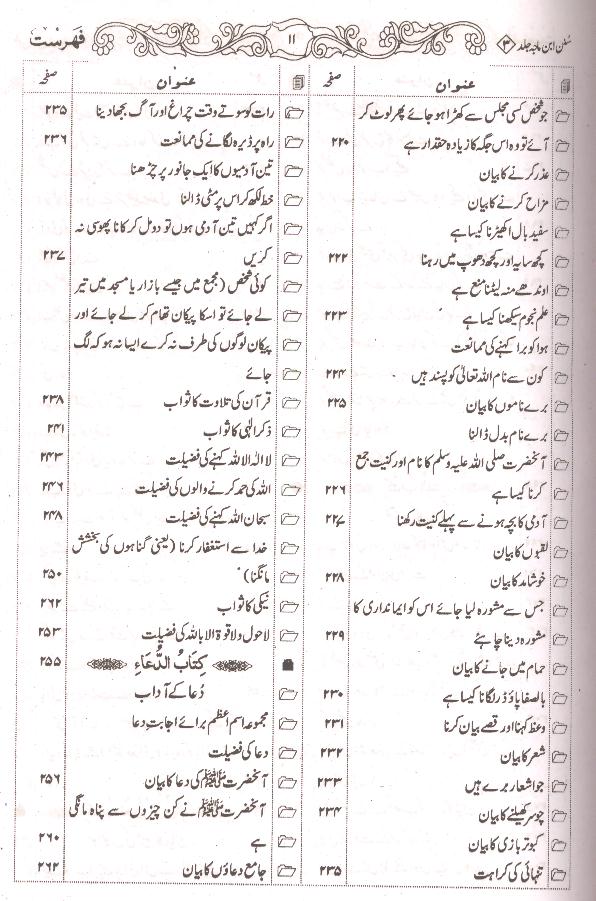 سُنن ابن ماجہ جلد ۳
۱۱
فہرست
عنوان صفحہ
جو شخص کسی مجلس سے کھڑا ہو جائے پھر لوٹ کر
آئے تو وہ اس جگہ کا زیادہ حقدار ہے ۲۲۰
عذر کرنے کا بیان
مزاح کرنے کا بیان
سفید بال اکھیڑنا کیسا ہے
کچھ سایہ اور کچھ دھوپ میں رہنا ۲۲۲
اوندھے منہ لیٹنا منع ہے
علم نجوم سیکھنا کیسا ہے ۲۲۳
ہوا کو برا کہنے کی ممانعت
کون سے نام اللہ تعالیٰ کو پسند ہیں ۲۲۴
برے ناموں کا بیان ۲۲۵
برے نام بدل ڈالنا
آنحضرت صلی اللہ علیہ وسلم کا نام اور کنیت جمع
کرنا کیسا ہے ۲۲۶
آدمی کا بچہ ہونے سے پہلے کنیت رکھنا ۲۲۷
لقبوں کا بیان
خوشامد کا بیان ۲۲۸
جس سے مشورہ لیا جائے اس کو ایمانداری کا
مشورہ دینا چاہئے ۲۲۹
حمام میں جانے کا بیان
بال صفا پاؤڈر لگانا کیسا ہے ۲۳۰
وعظ کہنا اور قصے بیان کرنا ۲۳۱
شعر کا بیان ۲۳۲
جو اشعار برے ہیں ۲۳۳
چوسر کھیلنے کا بیان ۲۳۴
کبوتر بازی کا بیان
تنہائی کی کراہت ۲۳۵
عنوان صفحہ
رات کو سوتے وقت چراغ اور آگ بجھا دینا ۲۳۵
راہ پر ڈیرہ لگانے کی ممانعت ۲۳۶
تین آدمیوں کا ایک جانور پر چڑھنا
خط لکھ کر اس پر مٹی ڈالنا
اگر کہیں تین آدمی ہوں تو دو مل کر کانا پھوسی نہ
کریں ۲۳۷
کوئی شخص (مجمع میں جیسے بازار یا مسجد میں تیر
لے جائے تو اسکا پیکان تھام کر لے جائے اور
پیکان لوگوں کی طرف نہ کرے ایسا نہ ہو کہ لگ
جائے
قرآن کی تلاوت کا ثواب ۲۳۸
ذکر الٰہی کا ثواب ۲۴۱
لا الٰہ الا اللہ کہنے کی فضیلت ۲۴۳
اللہ کی حمد کرنے والوں کی فضیلت ۲۴۶
سبحان اللہ کہنے کی فضیلت ۲۴۸
خدا سے استغفار کرنا (یعنی گناہوں کی بخشش
مانگنا) ۲۵۰
نیکی کا ثواب ۲۶۲
لا حول ولا قوۃ الا باللہ کی فضیلت ۲۵۳
کِتَابُ الدُّعَاءِ ۲۵۵
دُعا کے آداب
مجموعہ اسم اعظم برائے اجابتِ دعا
دعا کی فضیلت
آنحضرت ﷺ کی دعا کا بیان ۲۵۶
آنحضرت ﷺ نے کن چیزوں سے پناہ مانگی
ہے ۲۶۰
جامع دعاؤں کا بیان ۲۶۲